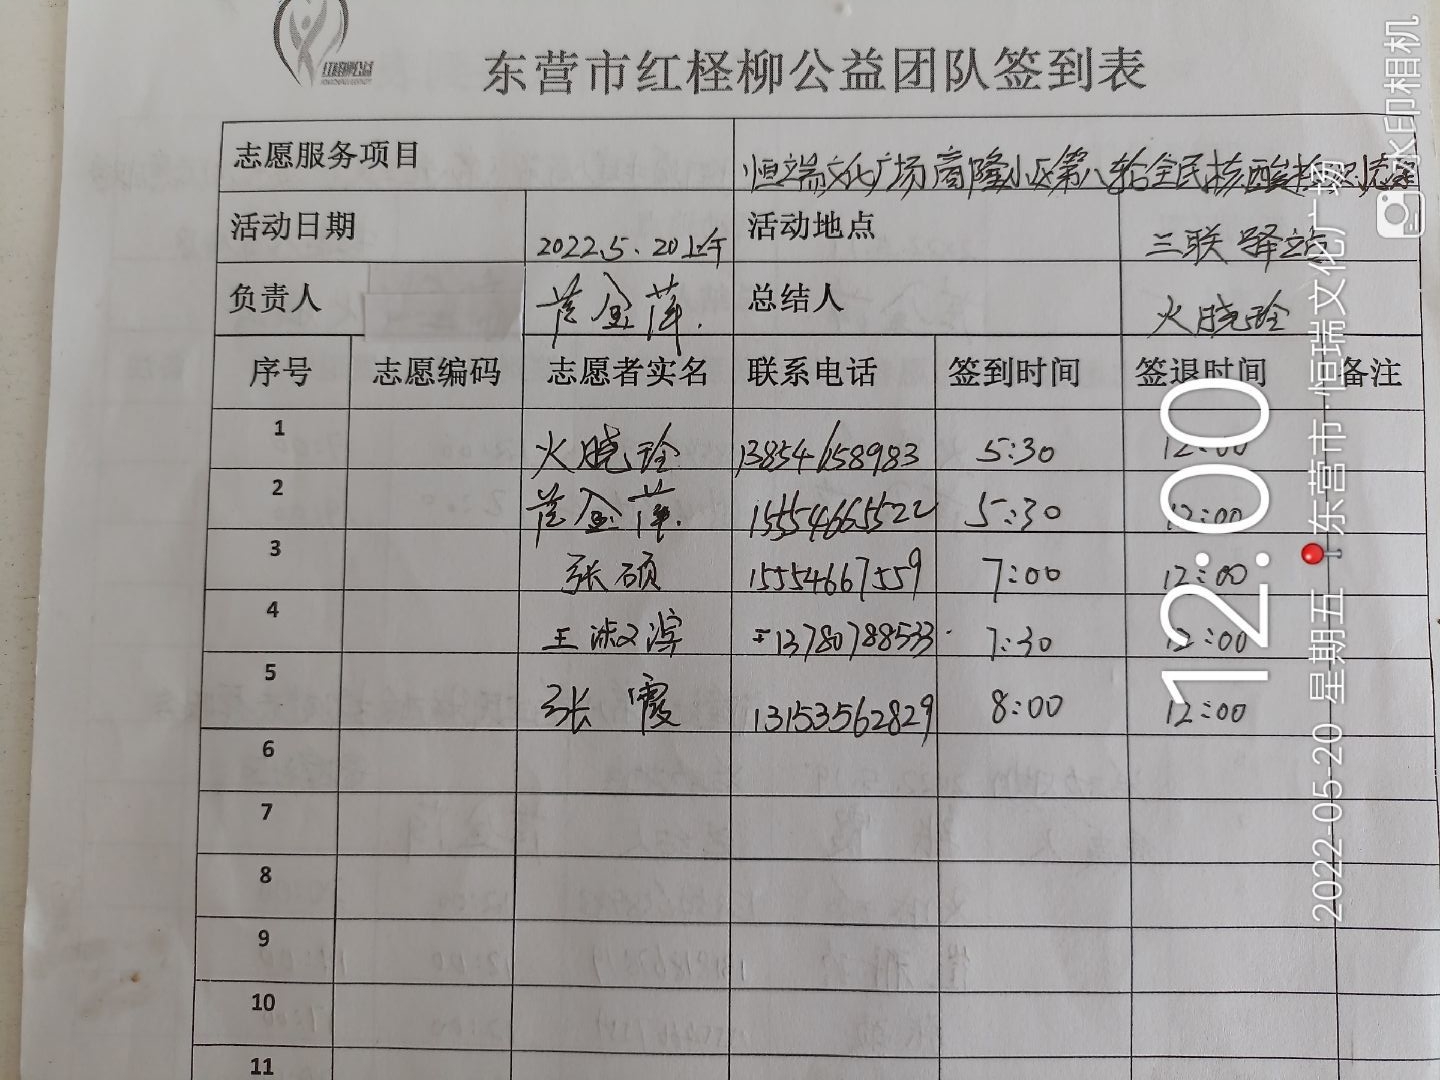 红柽柳公益
东营市红柽柳公益团队签到表
志愿服务项目 恒瑞文化广场商隆小区第八轮全民核酸检测
活动日期 2022.5.20上午 活动地点 三联驿站
负责人 金萍. 总结人 火晓玲
序号 志愿编码 志愿者实名 联系电话 签到时间 签退时间 备注
1 火晓玲 13854658983 5:30 12:00
2 金萍. 15554665522 5:30 12:00
3 张硕 15554667559 7:00 12:00
4 王淑滨 13780788533 7:30 12:00
5 张霞 13153562829 8:00 12:00
6
7
8
9
10
11
水印相机
12:00
2022-05-20 星期五 东营市·恒瑞文化广场